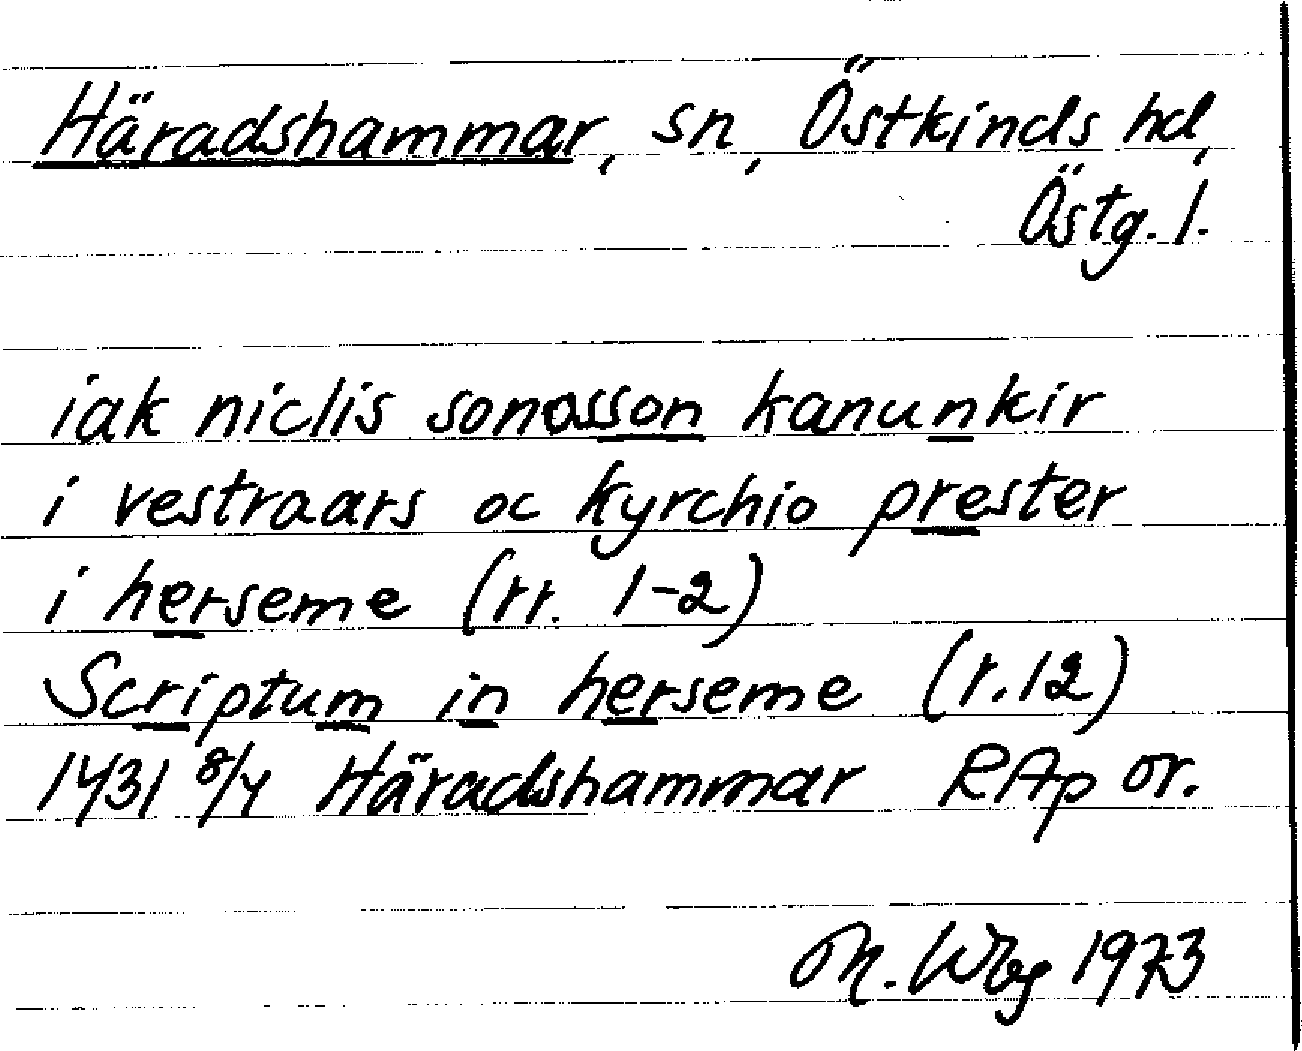 Häradshammar, sn, Östkinds hd,
Östg. l.
iak niclis sonasson kanunkir
i vestraars oc kyrchio prester
i herseme (rr. 1-2)
Scriptum in herseme (r. 12)
1431 8/4 Häradshammar RAp or.
M. Wbg 1973